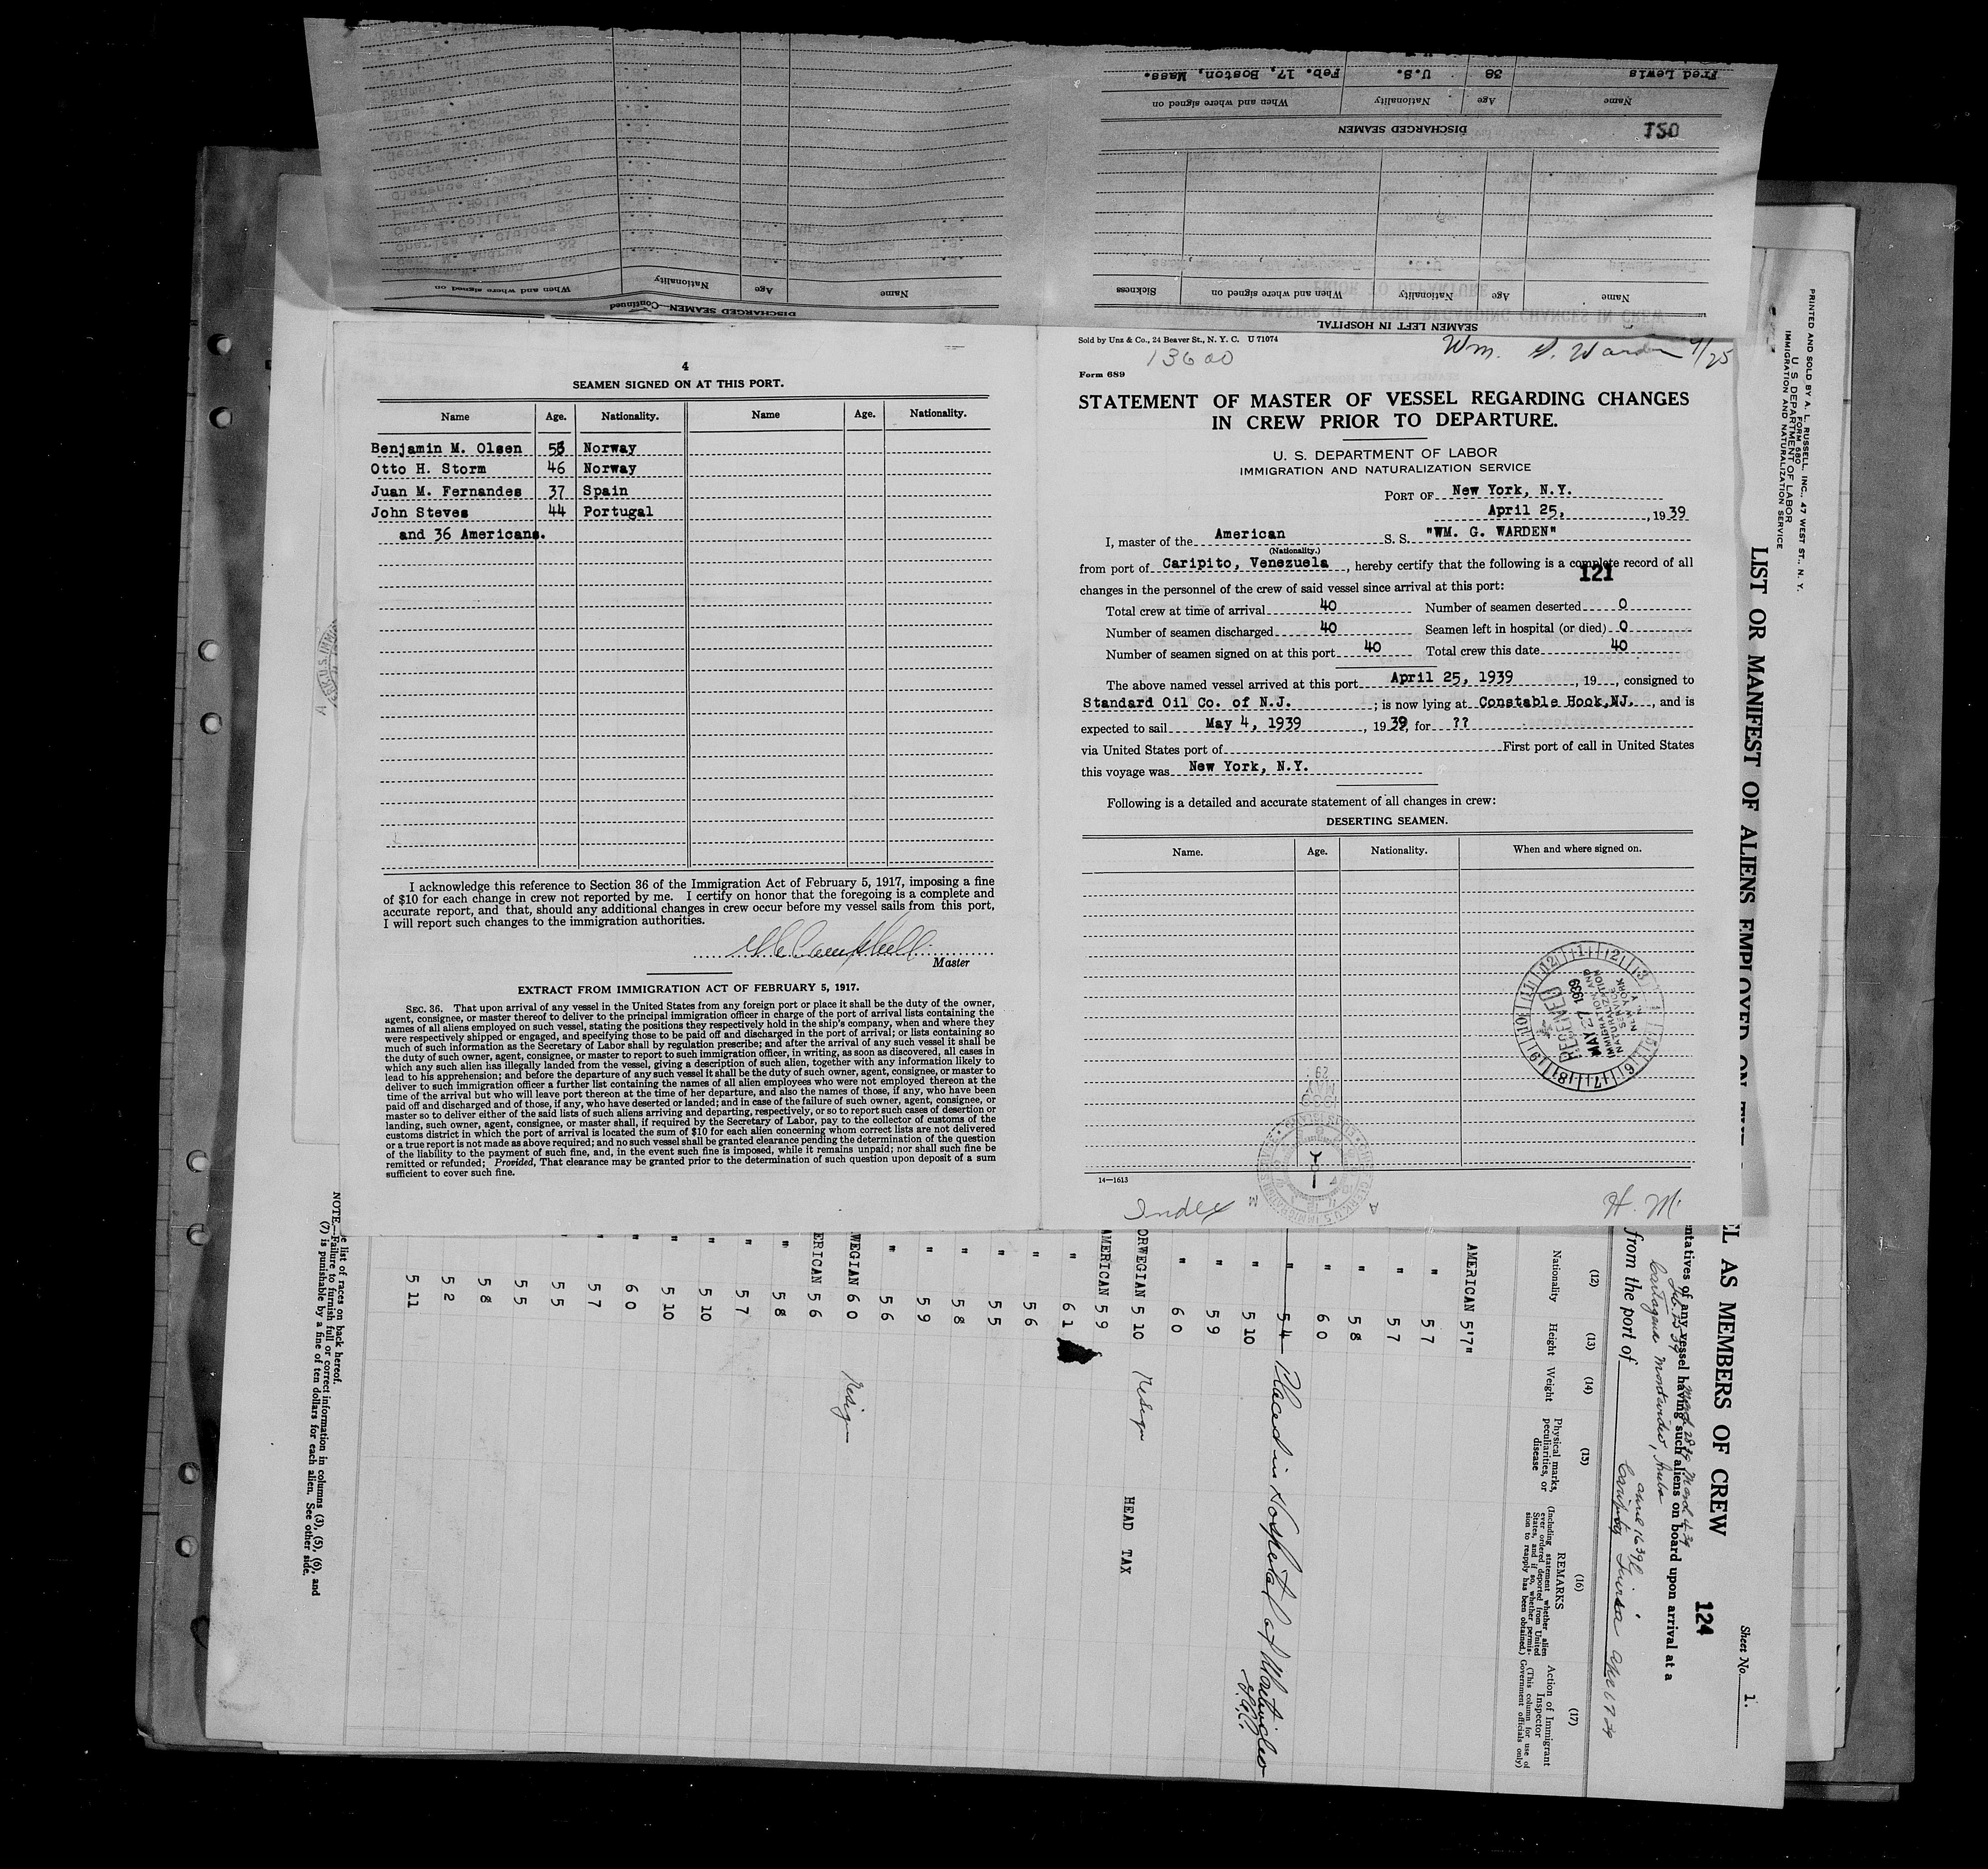 Fred Lewis 38 U.S. Feb. 17, Boston, Mass.
Name Age Nationality When and where signed on
DISCHARGED SEAMEN
150
Name Age Nationality When and where signed on Sickness
SEAMEN LEFT IN HOSPITAL
Name Age Nationality When and where signed on
DISCHARGED SEAMEN—Continued
4
SEAMEN SIGNED ON AT THIS PORT.
Name Age. Nationality. Name Age. Nationality.
Benjamin M. Olsen Norway
Otto H. Storm 46 Norway
Juan M. Fernandes 37 Spain
John Steves 44 Portugal
and 36 Americans.
I acknowledge this reference to Section 36 of the Immigration Act of February 5, 1917, imposing a fine
of $10 for each change in crew not reported by me. I certify on honor that the foregoing is a complete and
accurate report, and that, should any additional changes in crew occur before my vessel sails from this port,
I will report such changes to the immigration authorities.
Campbell
Master
EXTRACT FROM IMMIGRATION ACT OF FEBRUARY 5, 1917.
SEC. 36. That upon arrival of any vessel in the United States from any foreign port or place it shall be the duty of the owner,
agent, consignee, or master thereof to deliver to the principal immigration officer in charge of the port of arrival lists containing the
names of all aliens employed on such vessel, stating the positions they respectively hold in the ship's company, when and where they
were respectively shipped or engaged, and specifying those to be paid off and discharged in the port of arrival; or lists containing so
much of such information as the Secretary of Labor shall by regulation prescribe; and after the arrival of any such vessel it shall be
the duty of such owner, agent, consignee, or master to report to such immigration officer, in writing, as soon as discovered, all cases in
which any such alien has illegally landed from the vessel, giving a description of such alien, together with any information likely to
lead to his apprehension; and before the departure of any such vessel it shall be the duty of such owner, agent, consignee, or master to
deliver to such immigration officer a further list containing the names of all alien employees who were not employed thereon at the
time of the arrival but who will leave port thereon at the time of her departure, and also the names of those, if any, who have been
paid off and discharged and of those, if any, who have deserted or landed; and in case of the failure of such owner, agent, consignee, or
master so to deliver either of the said lists of such aliens arriving and departing, respectively, or so to report such cases of desertion or
landing, such owner, agent, consignee, or master shall, if required by the Secretary of Labor, pay to the collector of customs of the
customs district in which the port of arrival is located the sum of $10 for each alien concerning whom correct lists are not delivered
or a true report is not made as above required; and no such vessel shall be granted clearance pending the determination of the question
of the liability to the payment of such fine, and, in the event such fine is imposed, while it remains unpaid; nor shall such fine be
remitted or refunded; Provided, That clearance may be granted prior to the determination of such question upon deposit of a sum
sufficient to cover such fine.
Sold by Unz & Co., 24 Beaver St., N. Y. C. U 71074
13600
Wm. G. Warden 4/25
Form 689
STATEMENT OF MASTER OF VESSEL REGARDING CHANGES
IN CREW PRIOR TO DEPARTURE.
U. S. DEPARTMENT OF LABOR
IMMIGRATION AND NATURALIZATION SERVICE
PORT OF New York, N.Y.
April 25, , 1939
I, master of the American S. S. "WM. G. WARDEN"
(Nationality.)
from port of Caripito, Venezuela , hereby certify that the following is a complete record of all
121
changes in the personnel of the crew of said vessel since arrival at this port:
Total crew at time of arrival 40 Number of seamen deserted 0
Number of seamen discharged 40 Seamen left in hospital (or died) 0
Number of seamen signed on at this port 40 Total crew this date 40
The above named vessel arrived at this port April 25, 1939 , 19 , consigned to
Standard Oil Co. of N.J. ; is now lying at Constable Hook,NJ. , and is
expected to sail May 4, 1939 , 1939, for ??
via United States port of First port of call in United States
this voyage was New York, N.Y.
Following is a detailed and accurate statement of all changes in crew:
DESERTING SEAMEN.
Name. Age. Nationality. When and where signed on.
RECEIVED
MAY 27 1939
IMMIGRATION AND
NATURALIZATION
SERVICE
NEW YORK
N. Y.
14—1613
Index
H. M.
PRINTED AND SOLD BY A. L. RUSSELL, INC., 47 WEST ST., N. Y.
FORM 680
U. S. DEPARTMENT OF LABOR
IMMIGRATION AND NATURALIZATION SERVICE
LIST OR MANIFEST OF ALIENS EMPLOYED ON
EL AS MEMBERS OF CREW
Sheet No. 1.
124
ntatives of any vessel having such aliens on board upon arrival at a
from the port of
(12) (13) (14) (15) (16) (17)
Nationality Height Weight
Physical marks, peculiarities, or disease
REMARKS
(Including statement whether alien ever ordered deported from United States, and if so, whether permission to reapply has been obtained.)
Action of Immigrant Inspector
(This column for use of Government officials only)
AMERICAN 5'7"
" 5 7
" 5 7
" 5 8
" 6 0
" 5 4 Placed in Hospital at Montevideo
" 5 10
" 5 9
" 6 0
ORWEGIAN 5 10 Resign
HEAD TAX
AMERICAN 5 9
" 6 1
" 5 6
" 5 5
" 5 8
" 5 9
" 5 6
WEGIAN 6 0 Resign
ERICAN 5 6
" 5 8
" 5 7
" 5 10
" 5 10
" 6 0
" 5 7
5 5
5 5
5 8
5 2
5 11
e list of races on back hereof.
NOTE.—Failure to furnish full or correct information in columns (3), (5), (6), and
(7) is punishable by a fine of ten dollars for each alien. See other side.